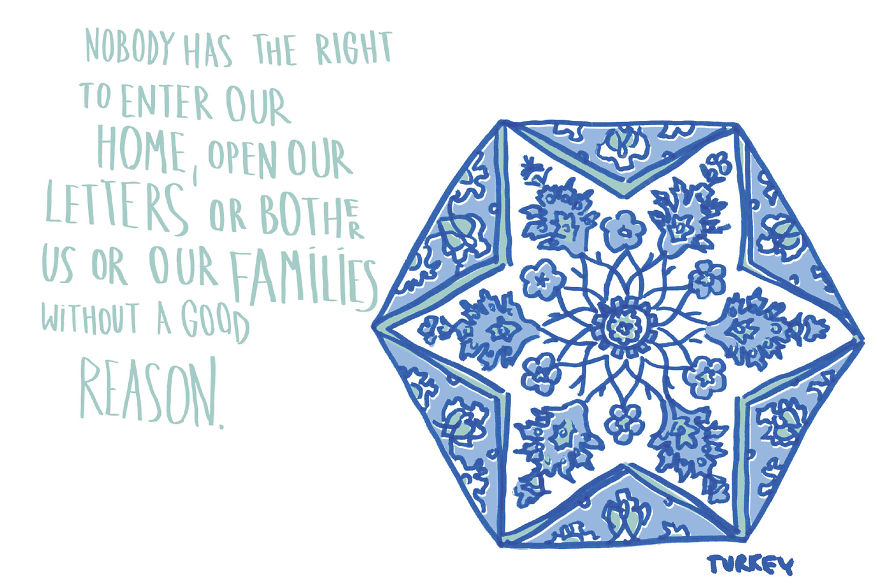 NOBODY HAS THE RIGHT
TO ENTER OUR
HOME, OPEN OUR
LETTERS OR BOTHER
US OR OUR FAMILIES
WITHOUT A GOOD
REASON.
TURKEY